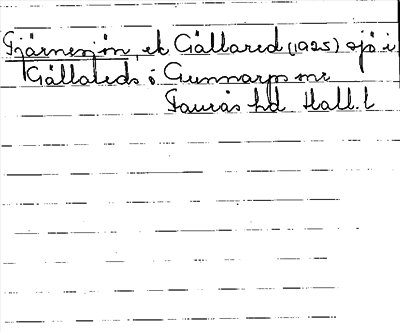 Tjärnesjön, ek Gällared (1925) sjö i
Gällareds o Gunnarps snr
Faurås hd Hall. l